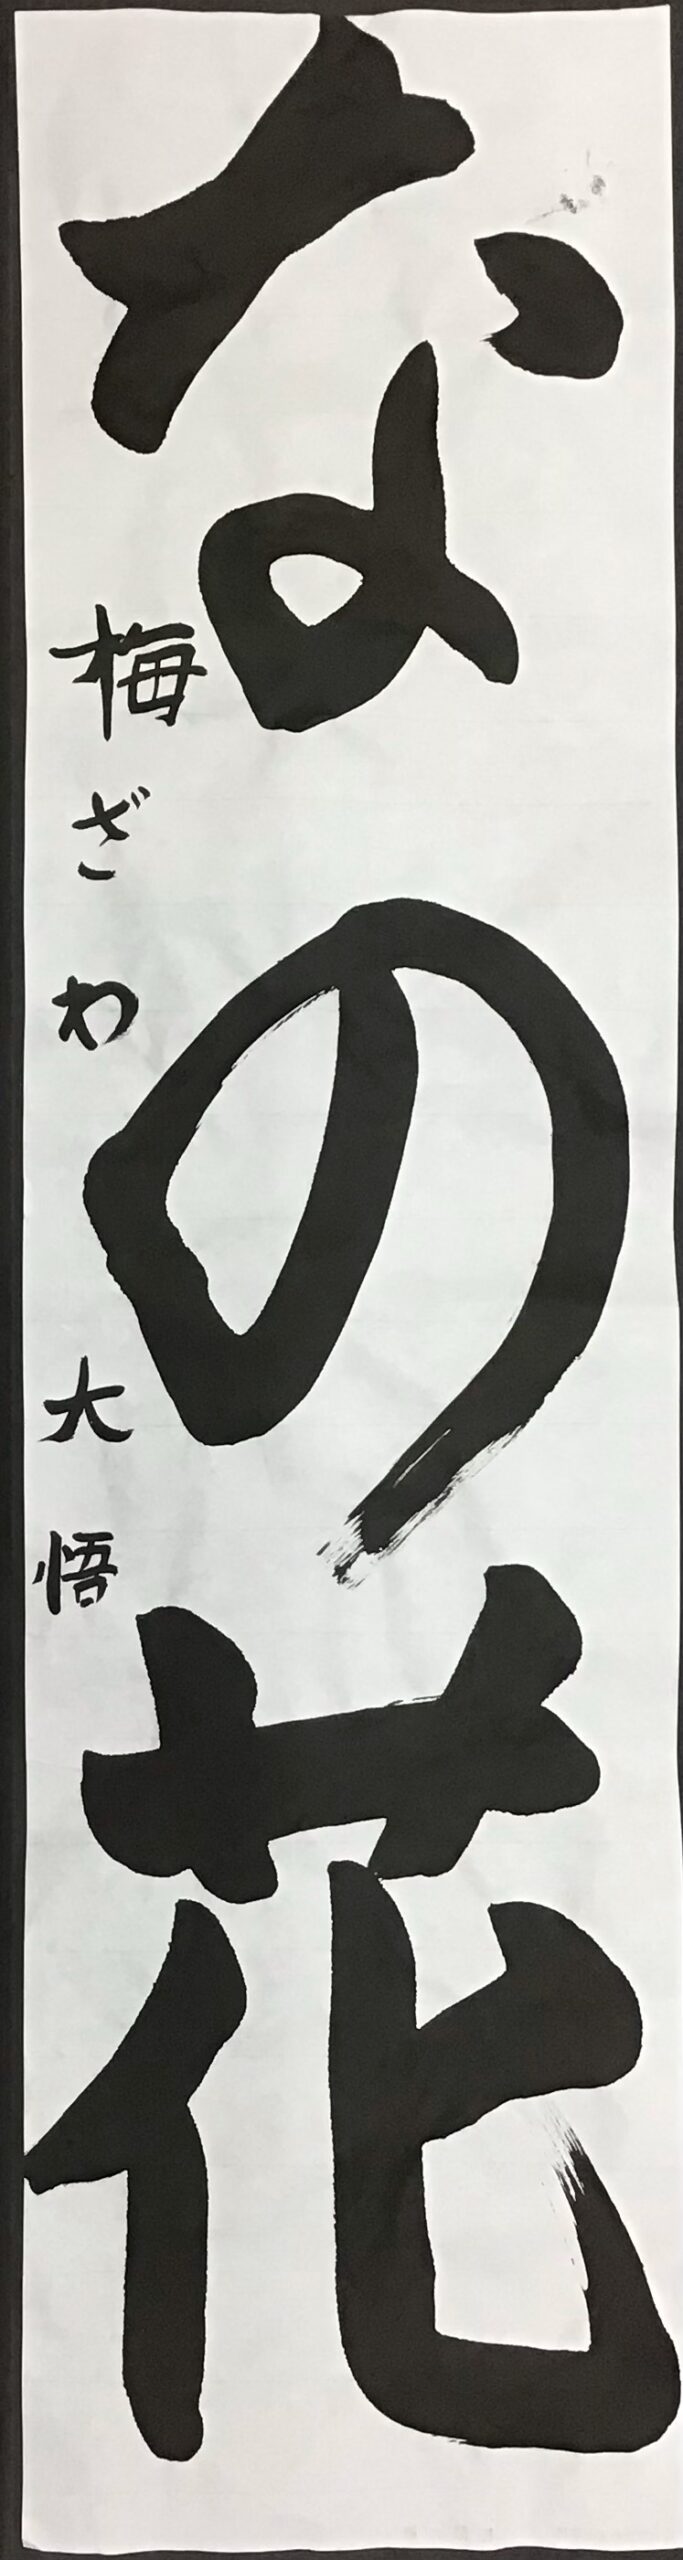 なの花
梅ざわ 大悟